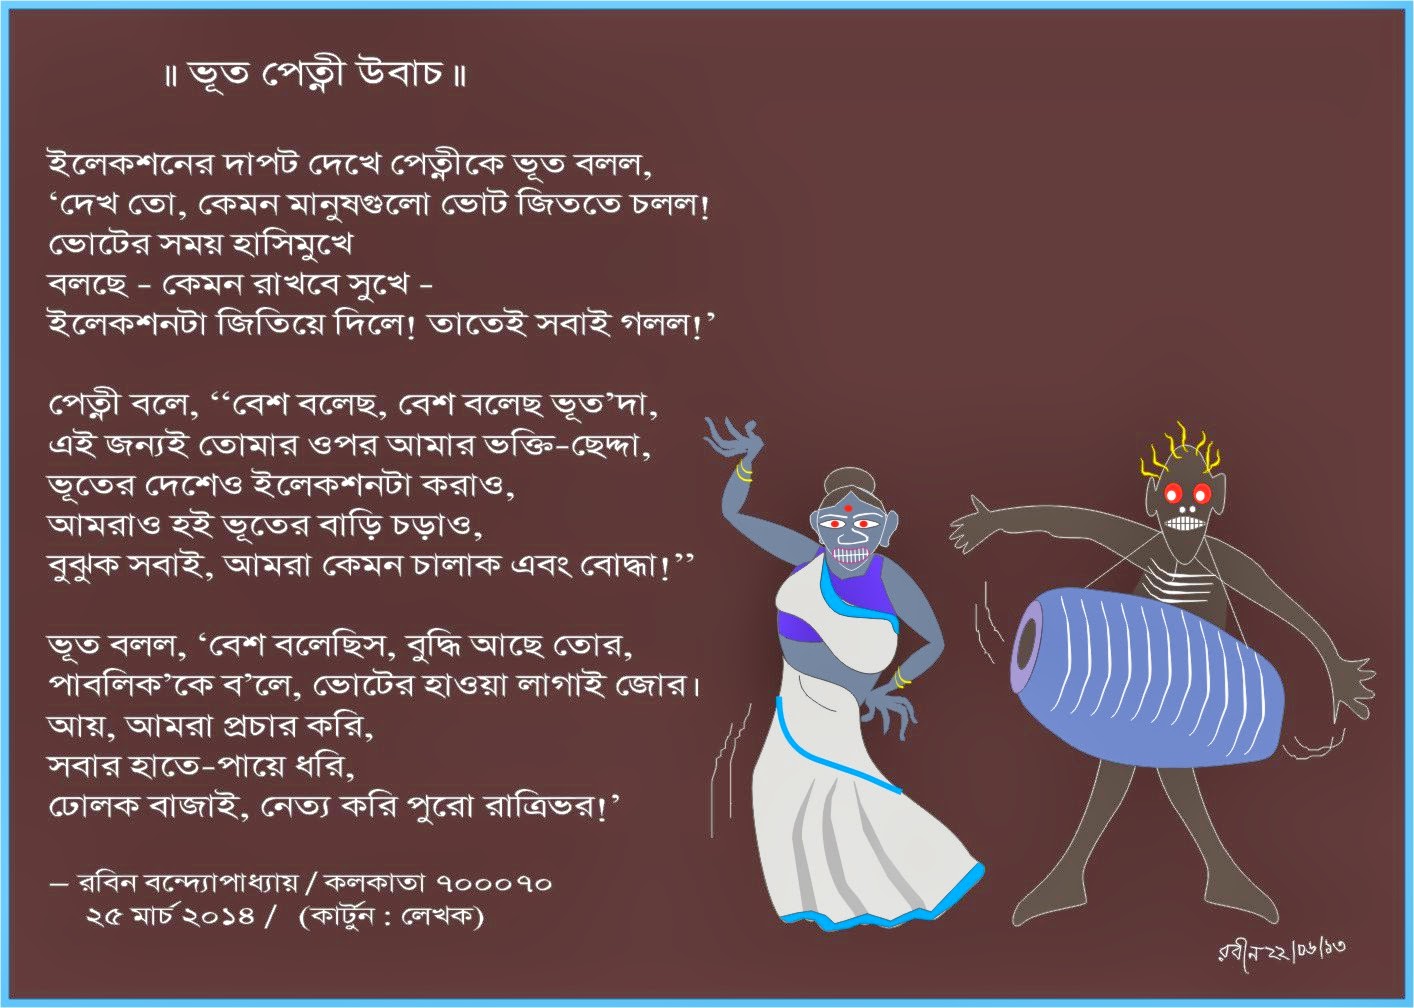 ॥ ভূত পেত্নী উবাচ ॥
ইলেকশনের দাপট দেখে পেত্নীকে ভূত বলল,
‘দেখ তো, কেমন মানুষগুলো ভোট জিততে চলল!
ভোটের সময় হাসিমুখে
বলছে - কেমন রাখবে সুখে -
ইলেকশনটা জিতিয়ে দিলে! তাতেই সবাই গলল!’
পেত্নী বলে, ‘‘বেশ বলেছ, বেশ বলেছ ভূত’দা,
এই জন্যই তোমার ওপর আমার ভক্তি-ছেদ্দা,
ভূতের দেশেও ইলেকশনটা করাও,
আমরাও হই ভূতের বাড়ি চড়াও,
বুঝুক সবাই, আমরা কেমন চালাক এবং বোদ্ধা!’’
ভূত বলল, ‘বেশ বলেছিস, বুদ্ধি আছে তোর,
পাবলিক’কে ব’লে, ভোটের হাওয়া লাগাই জোর।
আয়, আমরা প্রচার করি,
সবার হাতে-পায়ে ধরি,
ঢোলক বাজাই, নেত্য করি পুরো রাত্রিভর!’
– রবিন বন্দ্যোপাধ্যায় / কলকাতা ৭০০০৭০
২৫ মার্চ ২০১৪ / (কার্টুন : লেখক)
রবীন ২২/০৬/১৩